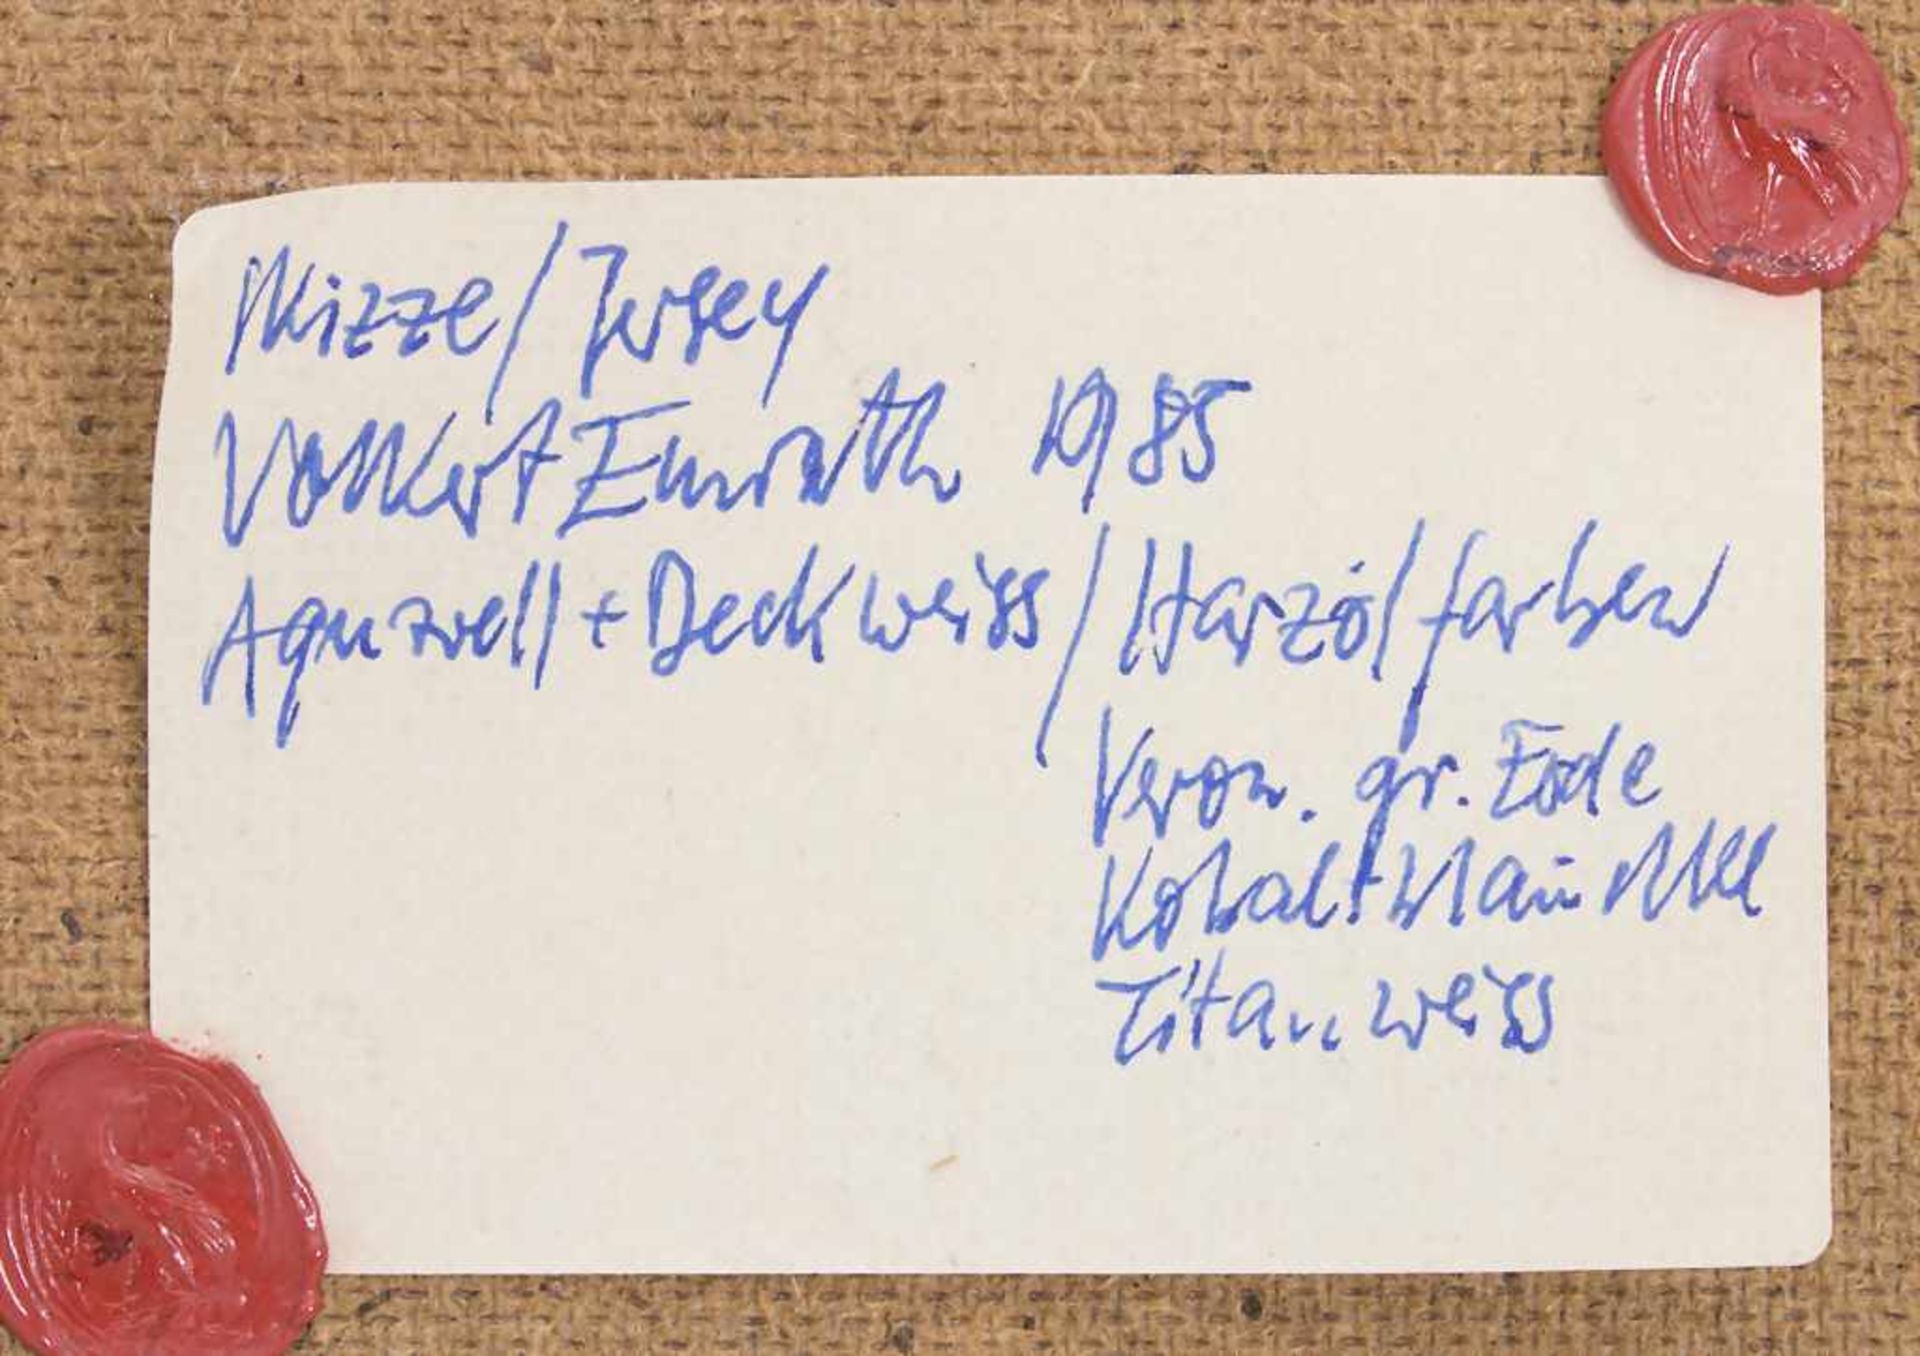 Skizze / Jersey
Volkert Emrath 1985
Aquarell + Deckweiss / Harzölfarben
Veron. gr. Erde
Kobaltblau
Titanweiss